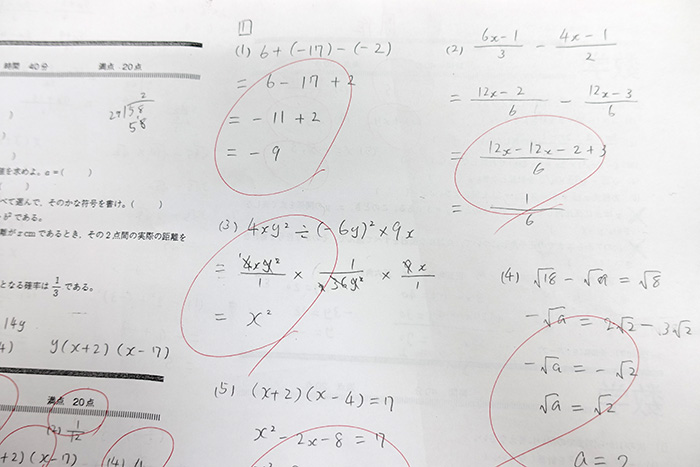 時間 40分 満点 20点
2
29)5.8
5.8
を求めよ。a=( )
( )
べて選んで、そのかな符号を書け。( )
である。
離がxcmであるとき、その2点間の実際の距離を
となる確率は1/3である。
14y
4) y(x+2)(x-7)
満点 20点
(2) 1/12
+2)(x-7)
(4)
1
(1) 6+(-17)-(-2)
= 6-17+2
= -11+2
= -9
(2) (6x-1)/3 - (4x-1)/2
= (12x-2)/6 - (12x-3)/6
= (12x-12x-2+3)/6
= 1/6
(3) 4xy²÷(-6y)²×9x
= 4xy²/1 × 1/36y² × 9x/1
= x²
(4) √18-√a=√8
-√a=2√2-3√2
-√a=-√2
√a=√2
a=2
(5) (x+2)(x-4)=7
x²-2x-8=7